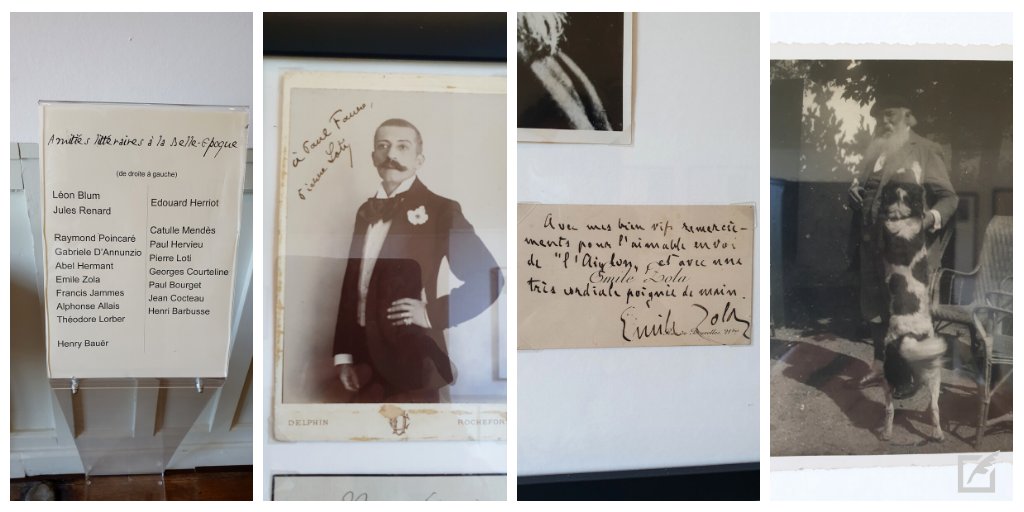 Amitiés littéraires à la Belle-Epoque
(de droite à gauche)
Léon Blum
Jules Renard
Raymond Poincaré
Gabriele D'Annunzio
Abel Hermant
Emile Zola
Francis Jammes
Alphonse Allais
Théodore Lorber
Henry Bauër
Edouard Herriot
Catulle Mendès
Paul Hervieu
Pierre Loti
Georges Courteline
Paul Bourget
Jean Cocteau
Henri Barbusse
à Paul Faure,
Pierre Loti
DELPHIN
ROCHEFOR
Avec mes bien vifs remercie-
ments pour l'aimable envoi
de "l'Aiglon, et avec une
Emile Zola
très cordiale poignée de main.
Emile Zola